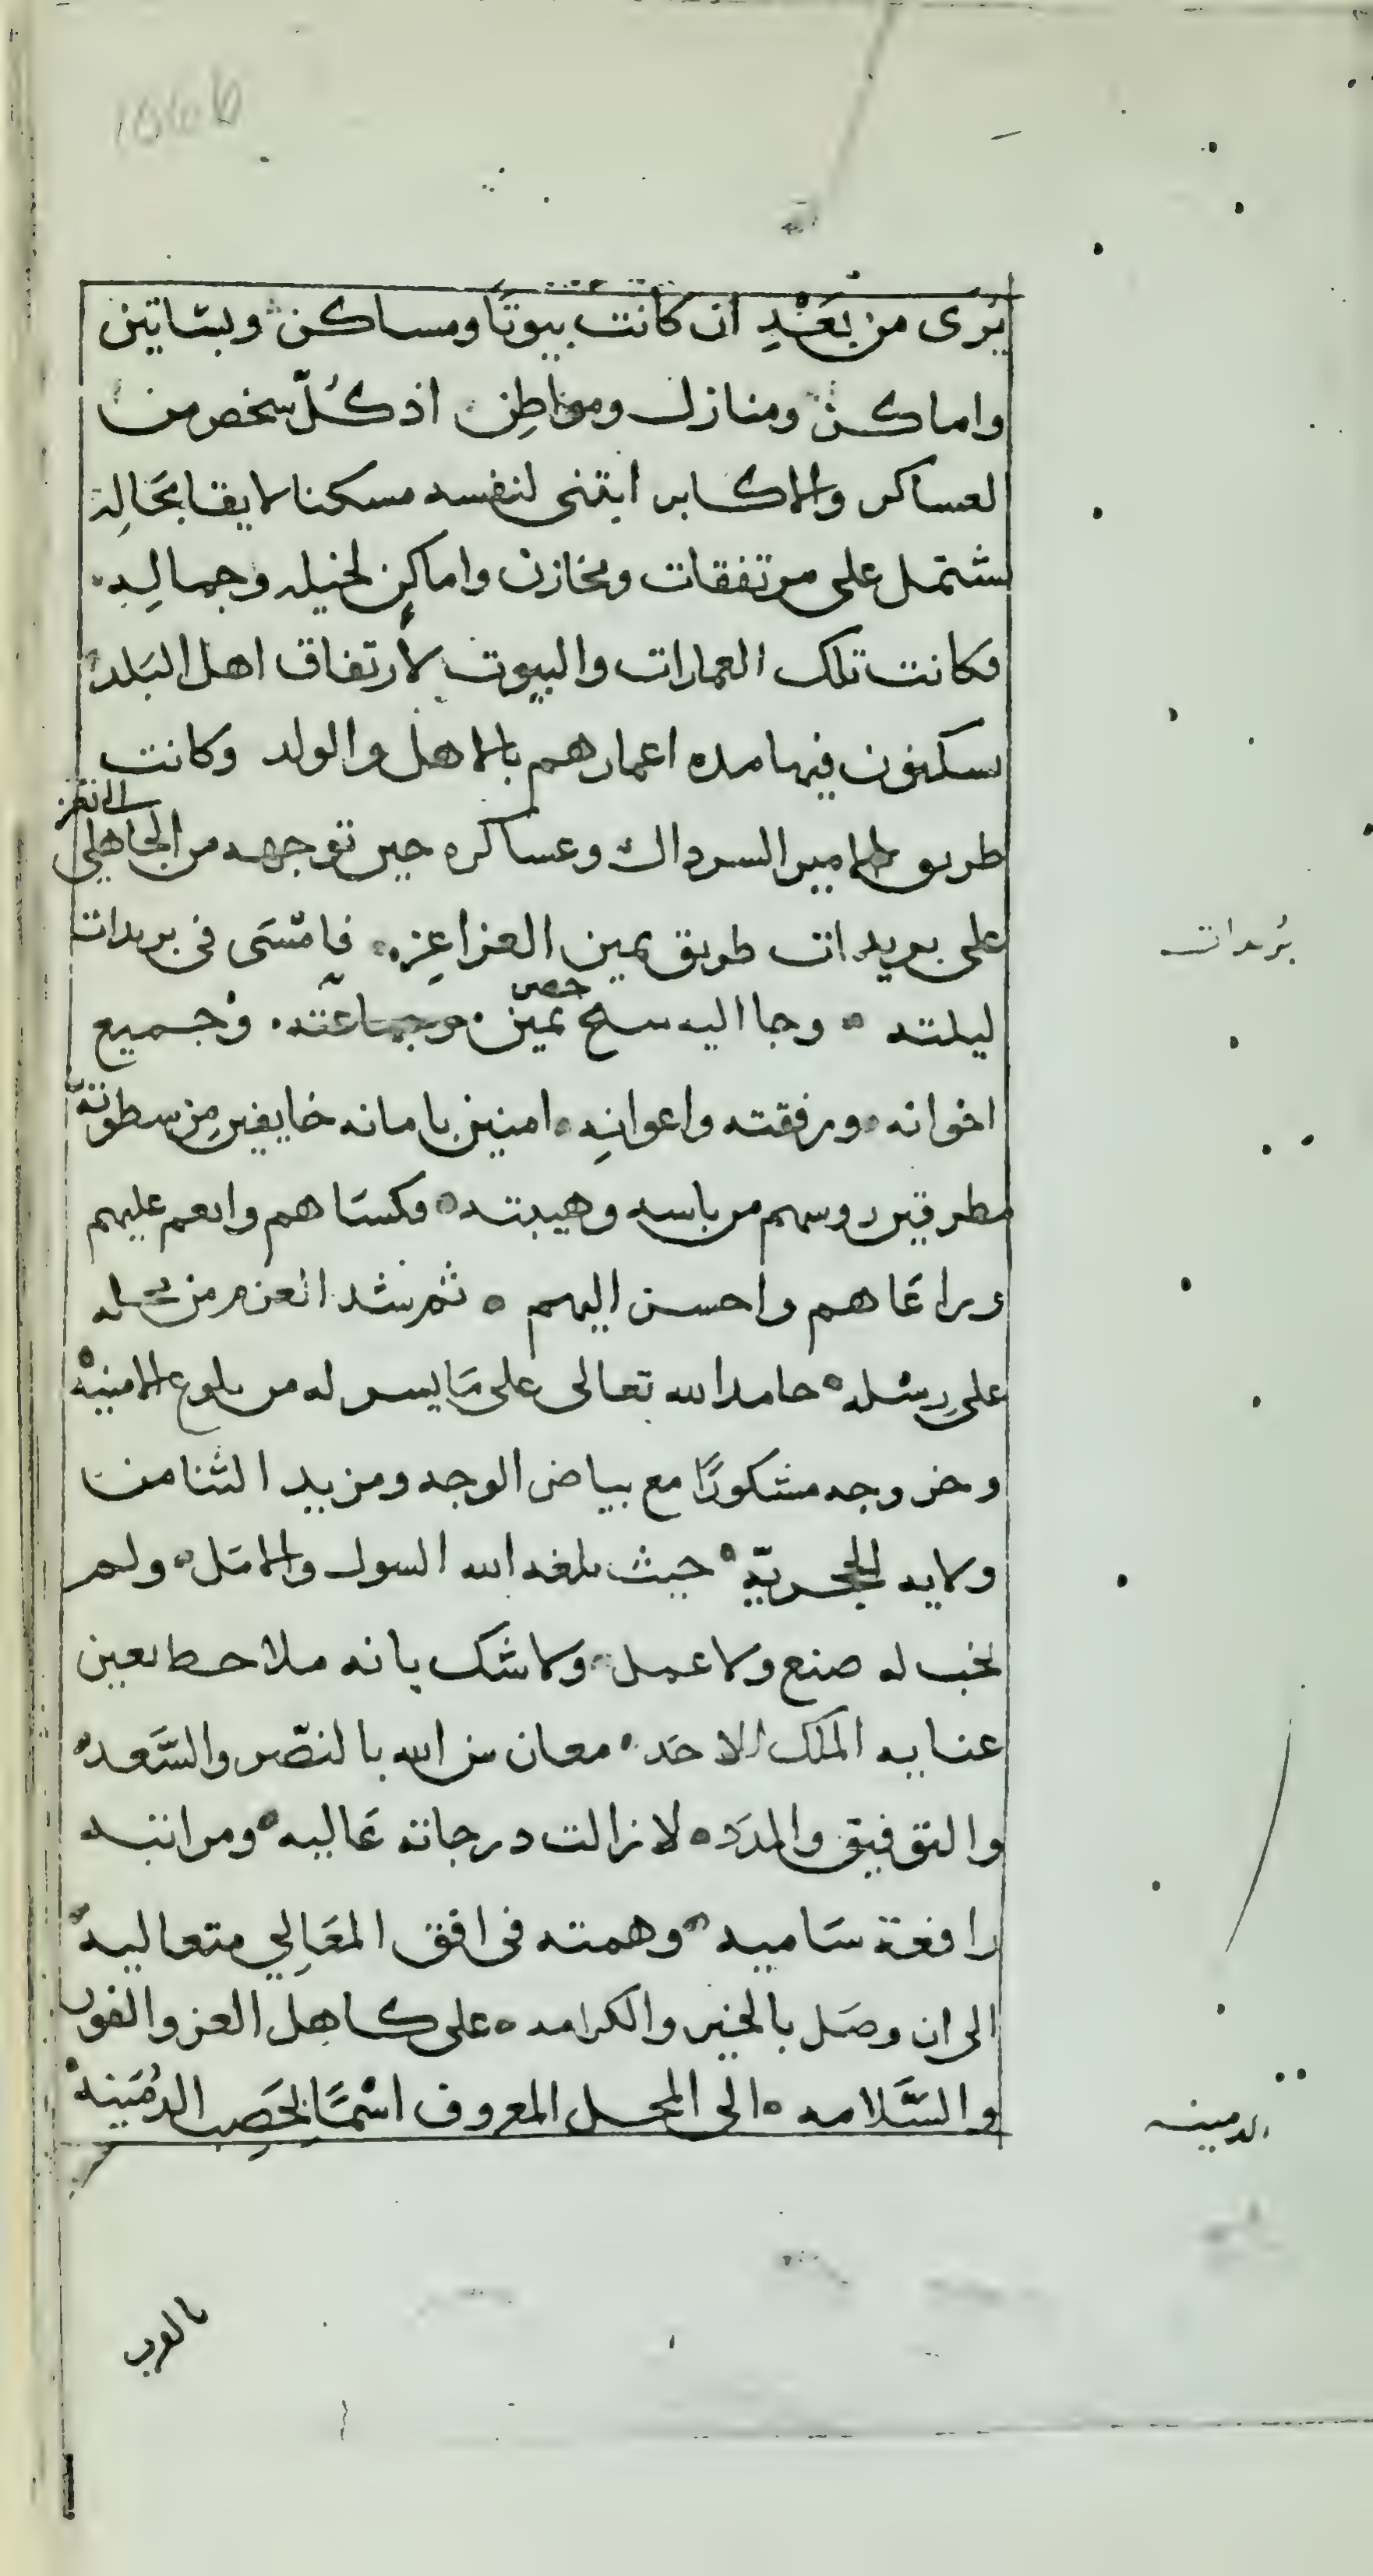 يرى من بَعْدِ ان كانت بيوتًا ومساكن وبساتين
واماكن ومنازل ومواطن اذ كُلّ شخص من
لعساكر والاكابر ابتنى لنفسه مسكنا لايقا بحَالِه
يشتمل على مرتفقات ومخازن واماكن لخيله وجمالِه
فكانت تلك العمارات والبيوت لأرتفاق اهل البَلد
يسكنون فيها مده اعمارهم بالاهل والولد وكانت
طريق الامير السردال وعساكره حين توجهه من الجاهلي
الى تعز
على بريدات طريق يمين العزاعِزِ فامْسَى في بريدات
بُريدات
ليلته وجا اليه شيخ حصن يمَين وجماعته وجميع
اخوانه ورفقته واعوانِه امنين بامانه خايفين مِن سطوته
مطرقين روسهم من باسه وهيبته فكسَاهم وانعم عليهم
وراعَاهم واحسن اليهم ثم شد العزم من محله
على رِسْله حامدا لله تعالى على مَا يسر له من بلوغ الامنيهْ
وخروجه مشكورًا مع بياض الوجه ومزيد الثنا من
ولايه الحجريّه حيث بلغه الله السول والامَل ولم
يخب له صنع ولا عمل ولا شك بانه ملاحظ بعين
عنايه الملك الاحَد معان من الله بالنصْر والسَّعد
والتوفيق والمدَد لا زالت درجاته عَاليه ومراتبه
رافعة سَاميه وهمته في افق المعَالِي متعاليه
الى ان وصَل بالخير والكرامه على كاهل العز والفوز
والسَّلامه الى المحل المعروف اسْمًا بخَصِب الدُمَينه
الدمينه
بالقرب